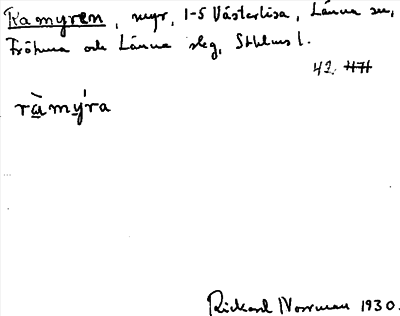 Ramyren, myr, 1-5 Västerlisa, Länna sn,
Fröhuna och Länna slg, Sthlms l.
42. HH
ràmy´ra
Rickard Norrman 1930.